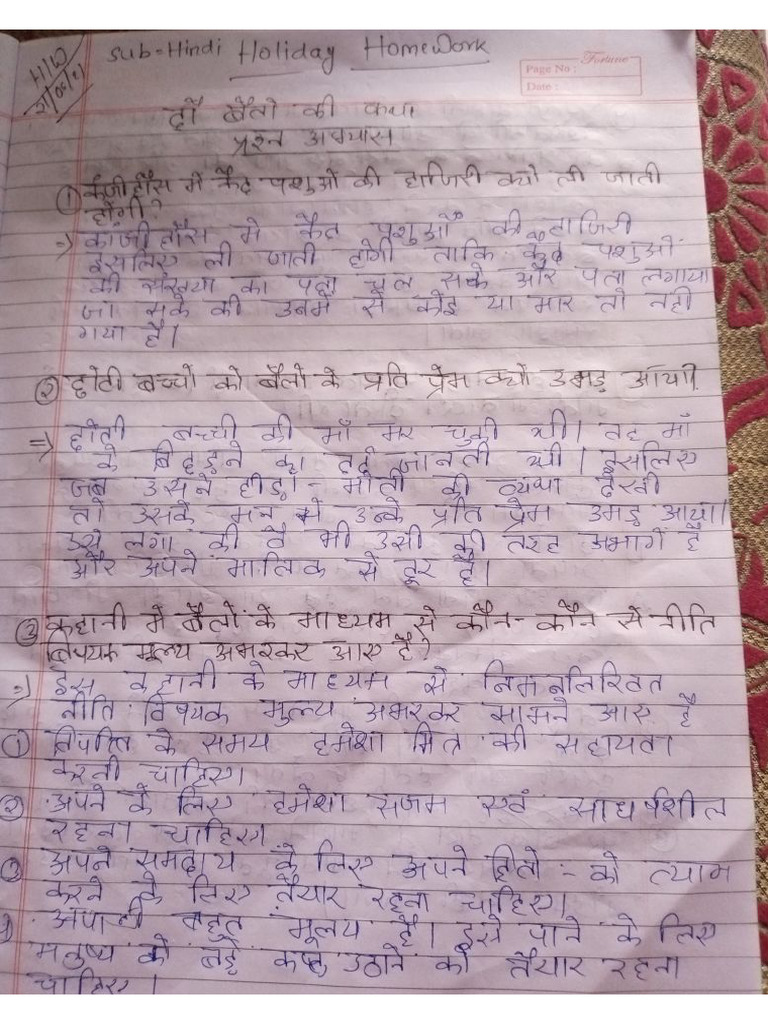 H/W
21/05/21
Sub=Hindi Holiday HomeWork
Fortune
Page No :
Date :
दो बैलो की कथा
प्रश्न अभ्यास
① कंजीहौस मे कैद पशुओं की हाजिरी क्यो ली जाती
होगी?
=> कांजीहौस मे कैद पशुओं की हाजिरी
इसलिए ली जाती होगी ताकि कैद पशुओं
की संख्या का पता चल सके और पता लगाया
जा सके की उनमें से कोई या मार तो नही
गया है।
② छोटी बच्ची को बैलो के प्रति प्रेम क्यों उमड़ आया।
=> छोटी बच्ची की माँ मर चुकी थी। वह माँ
के बिछड़ने का दर्द जानती थी। इसलिए
जब उसने हीरा - मोती की व्यथा देखी
तो उसके मन मे उनके प्रति प्रेम उमड़ आया।
उसे लगा की वे भी उसी की तरह अभागे है
और अपने मालिक से दूर है।
③ कहानी मे बैलों के माध्यम से कौन-कौन से नीति
विषयक मूल्य उभरकर आए है?
=> इस कहानी के माध्यम से निमनलिखित
नीति विषयक मुल्य उभरकर सामने आए है
① विपति के समय हमेशा मित्र की सहायता
करनी चाहिए।
② अपने के लिए हमेशा सजम एवं साधर्षशील
रहना चाहिए।
③ अपने समदाय के लिए अपने हितो को त्याम
करने के लिए तैयार रहना चाहिए।
बहुत मूलय है। इसे पाने के लिए
मनुष्य को बड़े कष्ट उठाने को तैयार रहना
चाहिए।